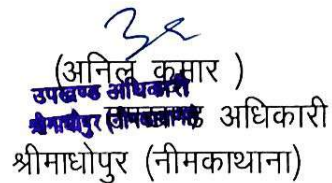 (अनिल कुमार )
उपखण्ड अधिकारी
श्रीमाधोपुर (नीमकाथाना)
अधिकारी
श्रीमाधोपुर (नीमकाथाना)